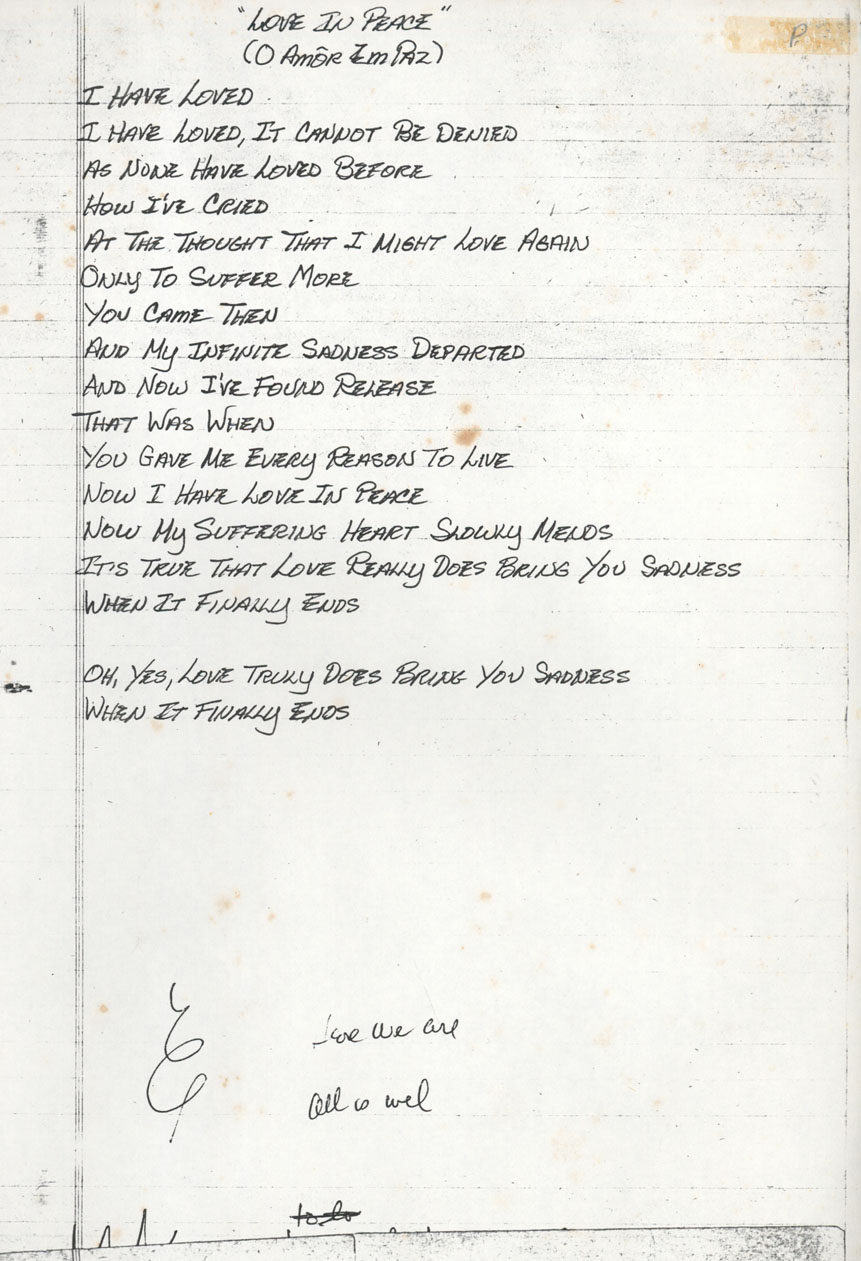 "LOVE IN PEACE"
(O AMÔR EM PAZ)
P.
I HAVE LOVED
I HAVE LOVED, IT CANNOT BE DENIED
AS NONE HAVE LOVED BEFORE
HOW I'VE CRIED
AT THE THOUGHT THAT I MIGHT LOVE AGAIN
ONLY TO SUFFER MORE
YOU CAME THEN
AND MY INFINITE SADNESS DEPARTED
AND NOW I'VE FOUND RELEASE
THAT WAS WHEN
YOU GAVE ME EVERY REASON TO LIVE
NOW I HAVE LOVE IN PEACE
NOW MY SUFFERING HEART SLOWLY MENDS
IT'S TRUE THAT LOVE REALLY DOES BRING YOU SADNESS
WHEN IT FINALLY ENDS
OH, YES, LOVE TRULY DOES BRING YOU SADNESS
WHEN IT FINALLY ENDS
we are
All is well